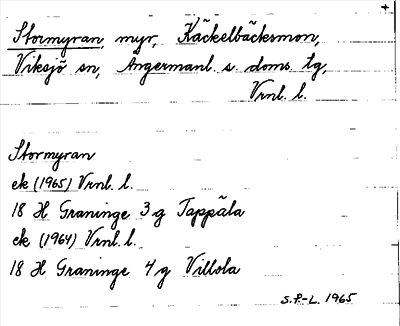 Stormyran, myr, Käckelbäcksmon,
Viksjö sn, Ångermanl. s. doms. tg,
Vrnl. l.
Stormyran
ek (1965) Vrnl. l.
18 H Graninge 3 g Tappäla
ek (1964) Vrnl. l.
18 H Graninge 4 g Villola
S.F-L. 1965